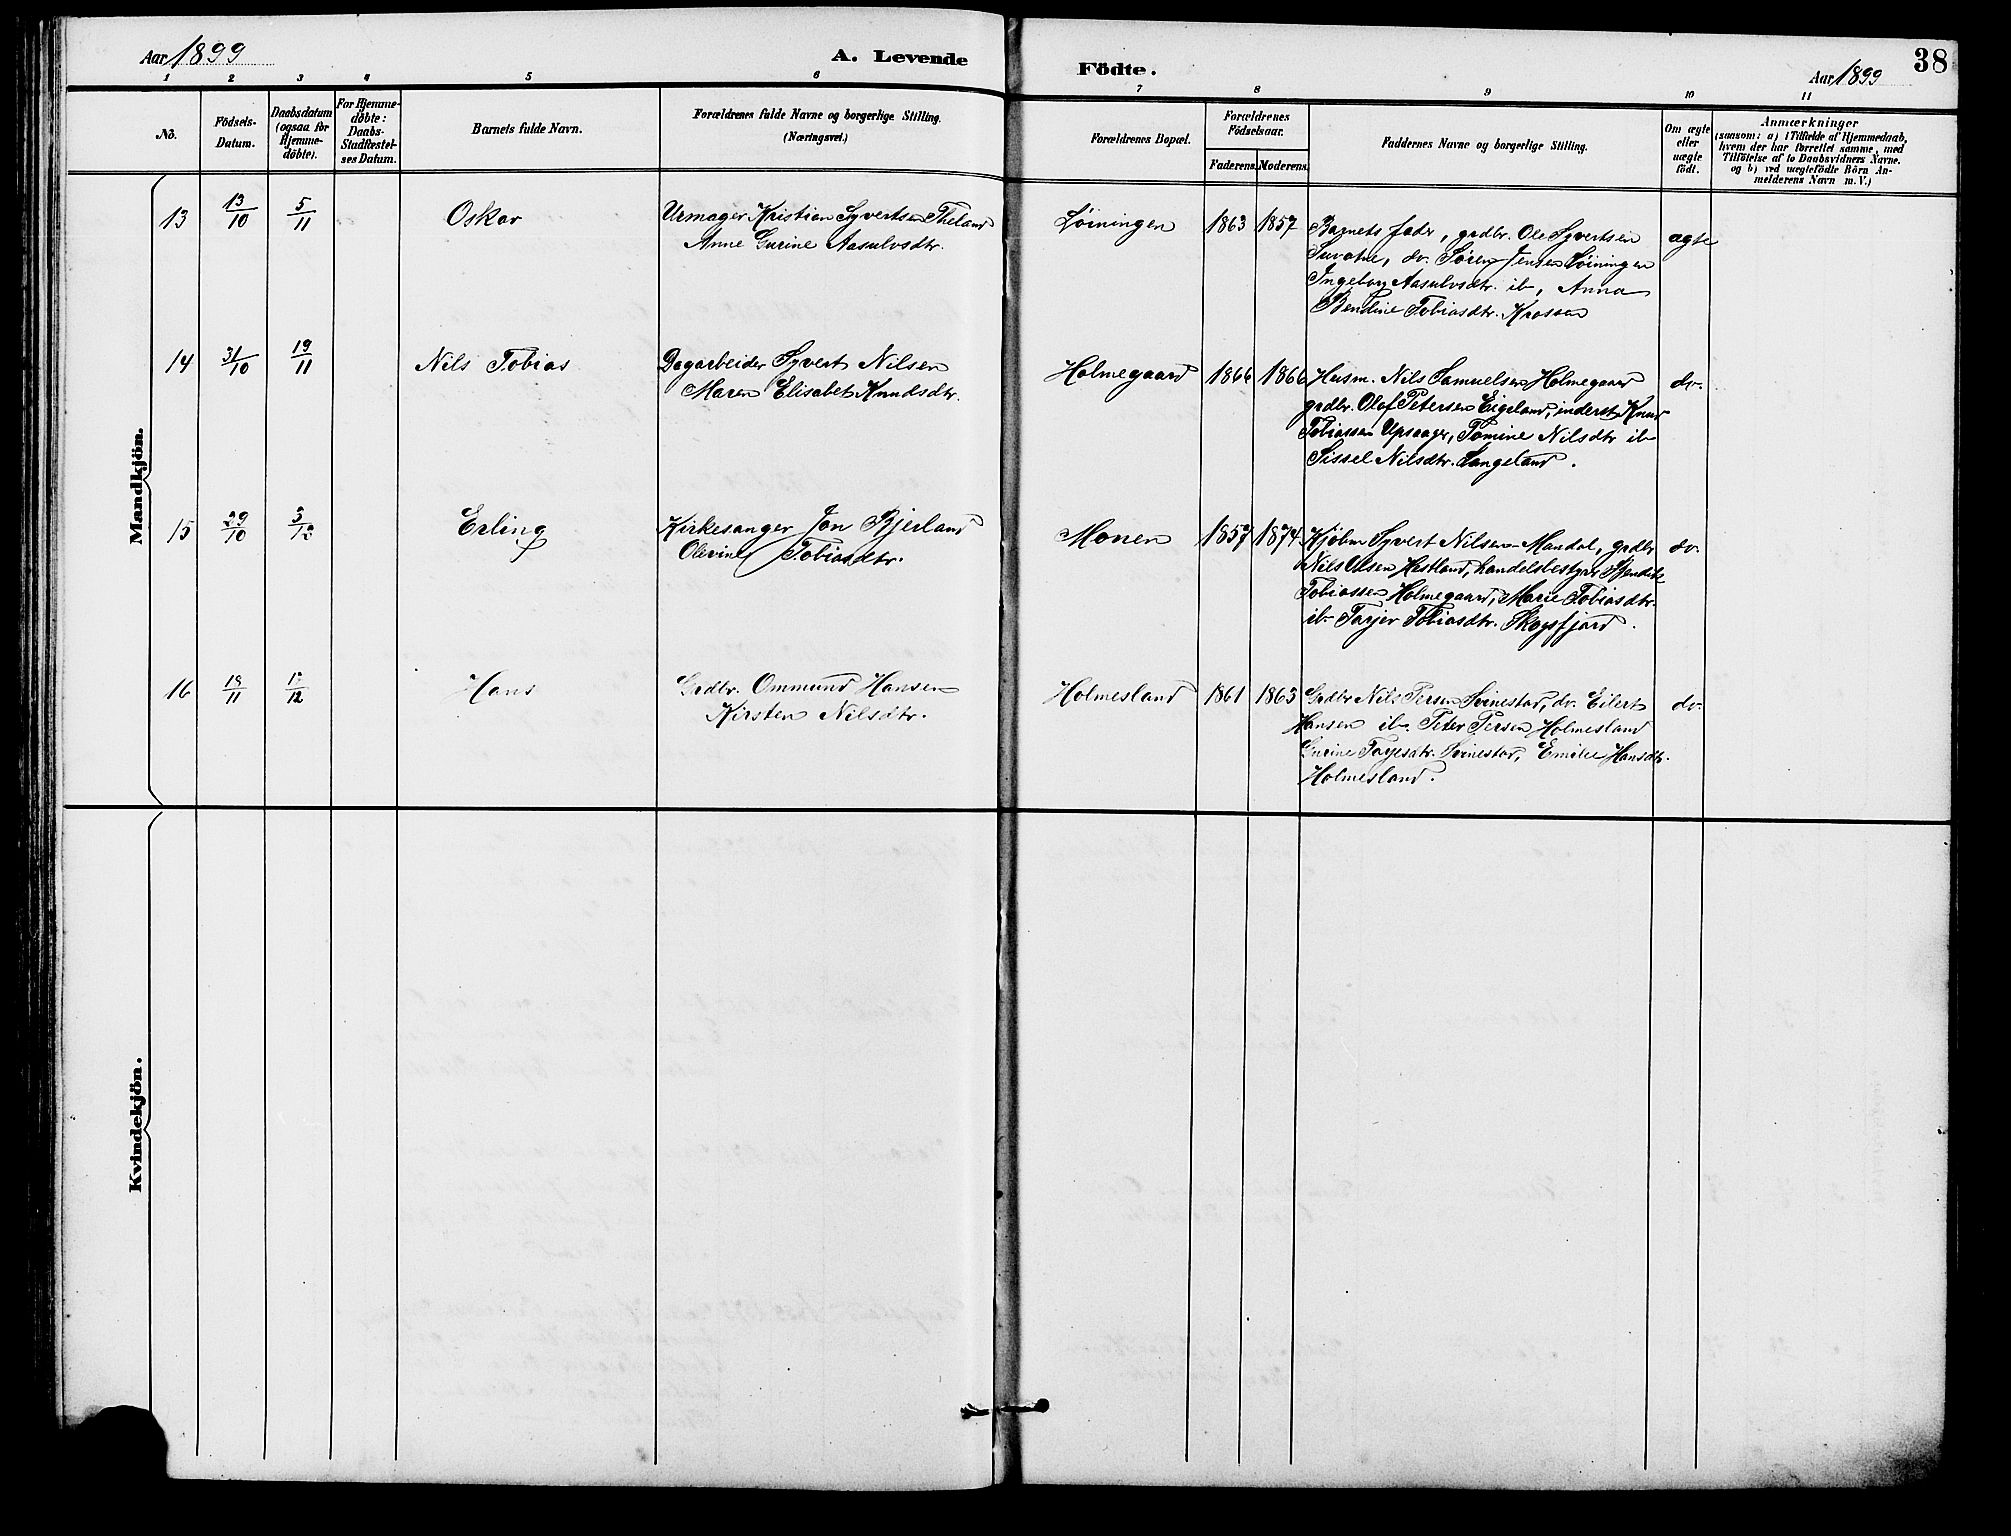 Aar 1899
A. Levende
Födte.
Aar 1899
38
1 2 3 4 5 6 7 8 9 10 11
No.
Födsels-
Datum.
Daabsdatum
(ogsaa for
Hjemme-
döbte).
For Hjemme-
döbte:
Daabs-
Stadfæstel-
ses Datum.
Barnets fulde Navn.
Forældrenes fulde Navne og borgerlige Stilling.
(Næringsvei.)
Forældrenes Bopæl.
Forældrenes
Födselsaar.
Faderens. Moderens.
Faddernes Navne og borgerlige Stilling.
Om ægte
eller
uægte
födt.
Anmærkninger
(saasom: a) i Tilfælde af Hjemmedaab,
hvem der har forrettet samme, med
Tilföielse af to Daabsvidners Navne.
og b) ved uægtefödte Börn An-
melderens Navn m. V.)
Mandkjön.
13 13/10 5/11 Oskar
Urmager Kristian Syvertsen Theland
Anne Gurine Aasulvsdtr.
Löiningen 1863 1857
Barnets fader, grdbr. Ole Syvertsen
do. Søren Jensen Löiningen
Ingeborg Aasulvsdtr. ib, Anna
Bendine Tobiasdtr. Krossen
ægte
14 31/10 19/11 Nils Tobias
Dagarbeider Syvert Nilsen
Maren Elisabet Knudsdtr.
Holmegaard 1866 1866
Husm. Nils Samuelsen Holmegaard
grdbr. Olof Petersen Eigeland, inderst Knud
Tobiassen Upsager, Tomine Nilsdtr ib
Sissel Nilsdtr. Langeland.
do.
15 29/10 3/12 Erling
Kirkesanger Jon Bjerland
Olevine Tobiasdtr.
Monen 1857 1874
Kjøbm Syvert Nilsen Mandal, grdbr
Nils Olsen Hestland, handelsbestyrer
Tobiassen Holmegaard, Marie Tobiasdtr.
ib Tarjer Tobiasdtr. Skogsfjord.
do.
16 18/11 /12 Hans
Grdbr. Ommund Hansen
Kirsten Nilsdtr.
Holmesland 1861 1863
Grdbr Nils Persen Svinestad, do. Eilert
Hansen ib. Peter Persen Holmesland
Gurine Tarjesdtr. Svinestad, Emilie Hansdtr.
Holmesland.
do.
Kvindekjön.